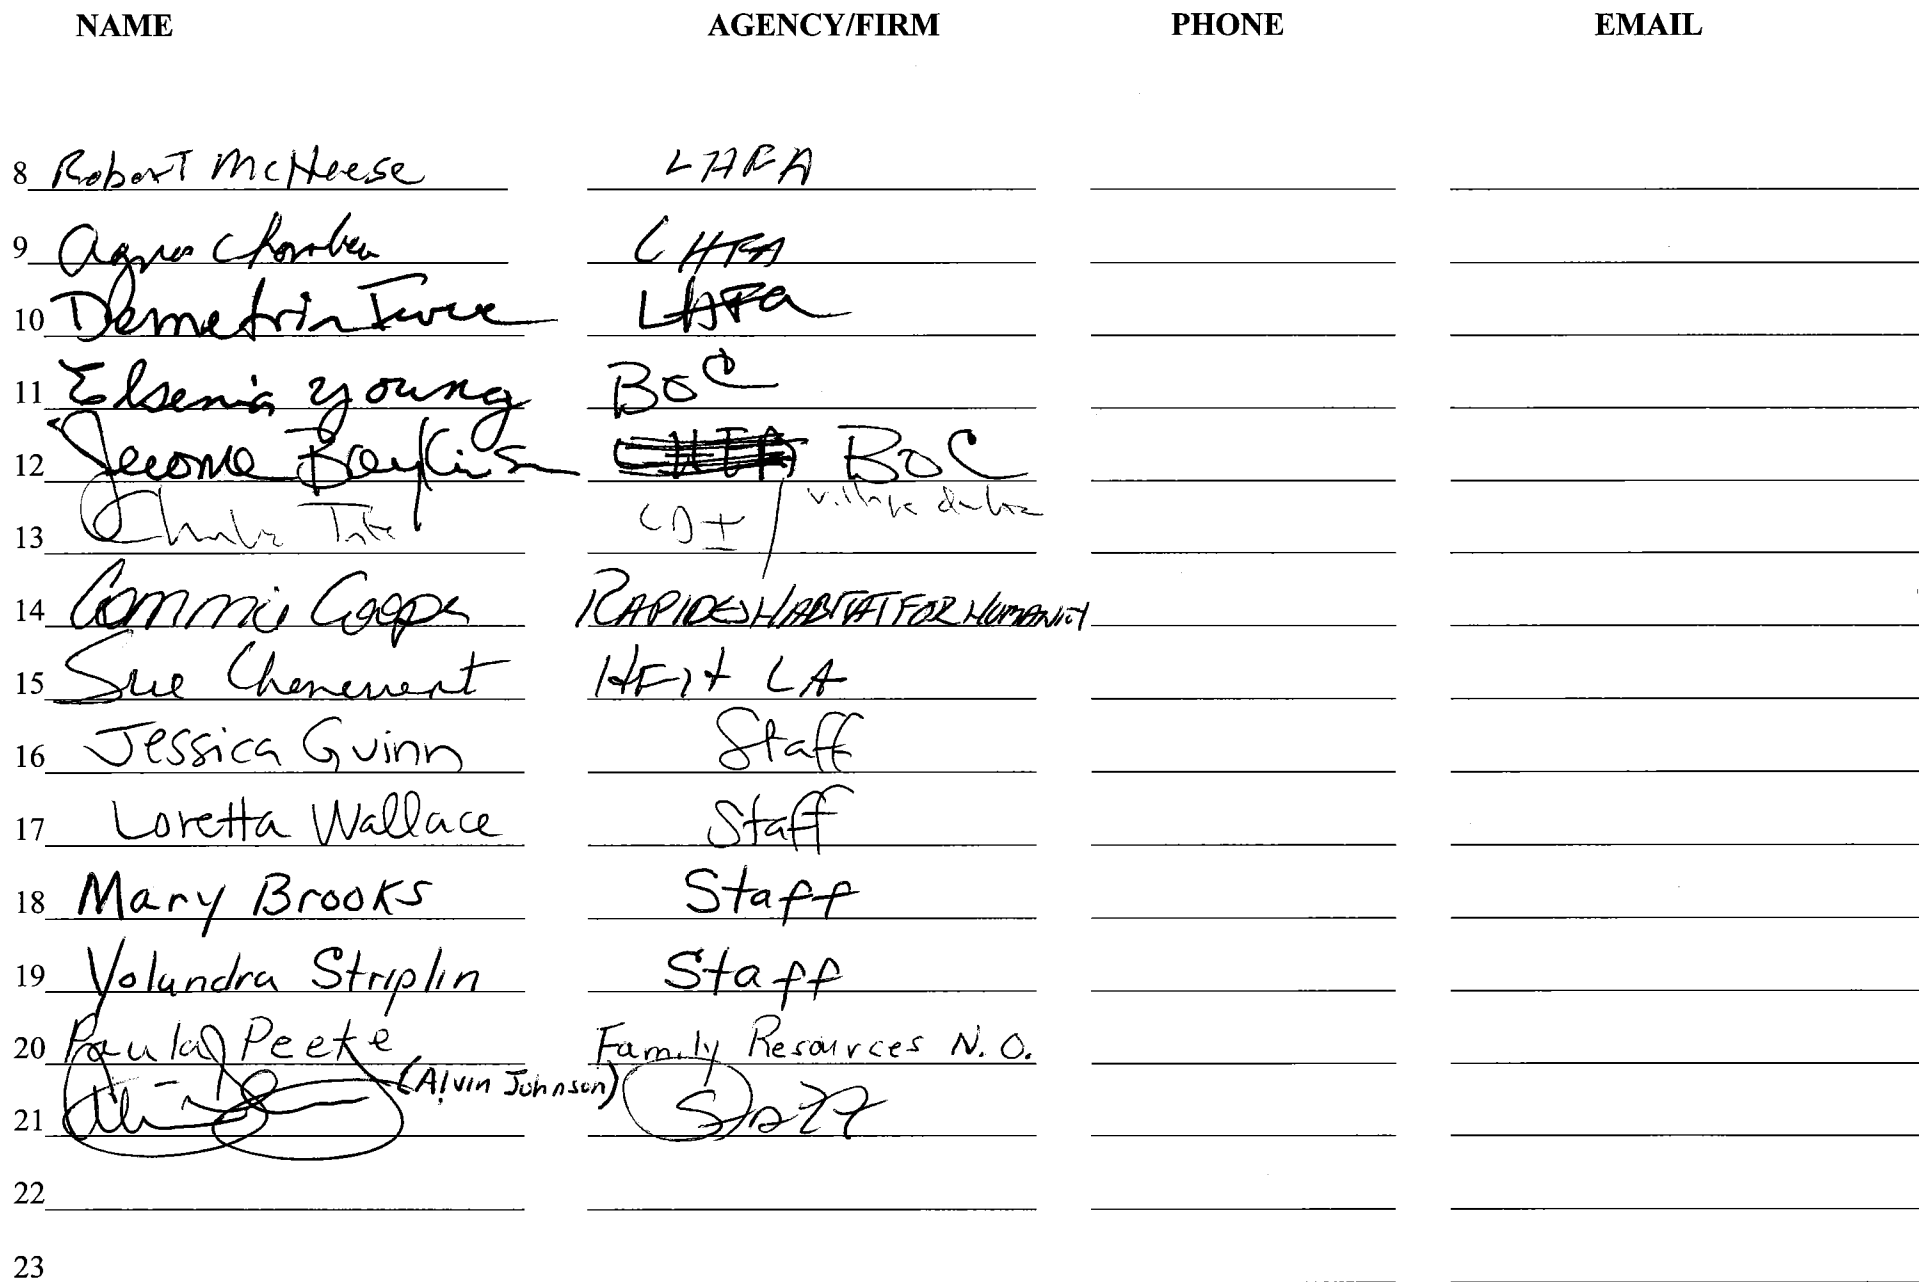 NAME AGENCY/FIRM PHONE EMAIL
8 Robert McNeese LHFA
9 Agnes Chambers LHFA
10 Demetria LHFA
11 Elsenia Young BOC
12 Jerome Boykin BOC
13 Tate CDI /
14 Connie Cooper RAPIDES HABITAT FOR HUMANITY
15 Sue LA
16 Jessica Guinn Staff
17 Loretta Wallace Staff
18 Mary Brooks Staff
19 Yolundra Striplin Staff
20 Paula Peete Family Resources N.O.
21 (Alvin Johnson) Staff
22
23